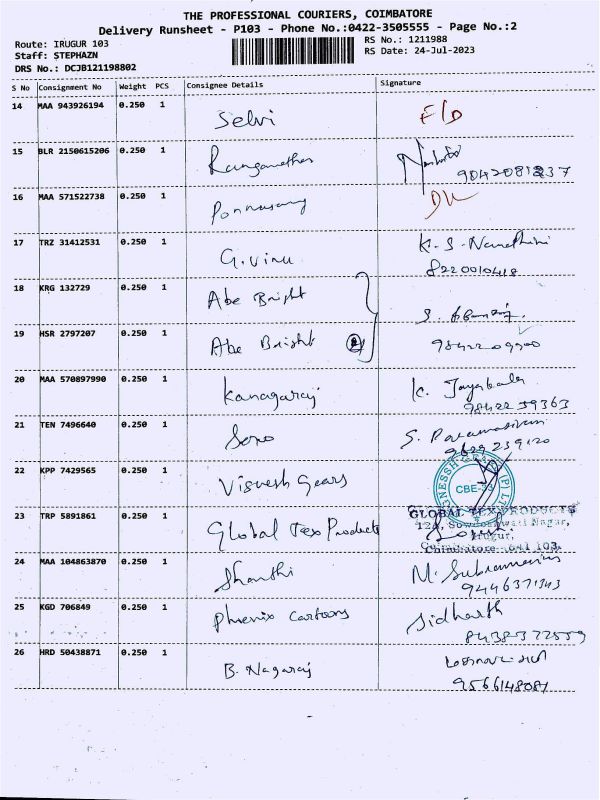 THE PROFESSIONAL COURIERS, COIMBATORE
Delivery Runsheet - P103 - Phone No.:0422-3505555 - Page No.:2
Route: IRUGUR 103
RS No.: 1211988
Staff: STEPHAZN
RS Date: 24-Jul-2023
DRS No.: DCJB121198802
S No Consignment No Weight PCS Consignee Details Signature
14 MAA 943926194 0.250 1 Selvi F/D
15 BLR 2150615206 0.250 1 Ranganathan
16 MAA 571522738 0.250 1 Ponnusamy
17 TRZ 31412531 0.250 1 G. Vinu K. S. Nanathini
8220010418
18 KRG 132729 0.250 1 Abe Bright
19 HSR 2797207 0.250 1 Abe Bright 2 9842209900
20 MAA 570897990 0.250 1 Kanagaraj K. Jayabala
9842259363
21 TEN 7496640 0.250 1 S. Paramasivam
9629239120
22 KPP 7429565 0.250 1 Visvesh Gears
CBE-
23 TRP 5891861 0.250 1 Global Tex Products GLOBAL TEX PRODUCTS
Nagar,
Irugur,
Coimbatore - 641 103.
24 MAA 104863870 0.250 1 Shanthi M. Subramanian
9446371343
25 KGD 706849 0.250 1 Phoenix Cartoons Sidharth
8438377559
26 HRD 50438871 0.250 1 B. Nagaraj
9566148087